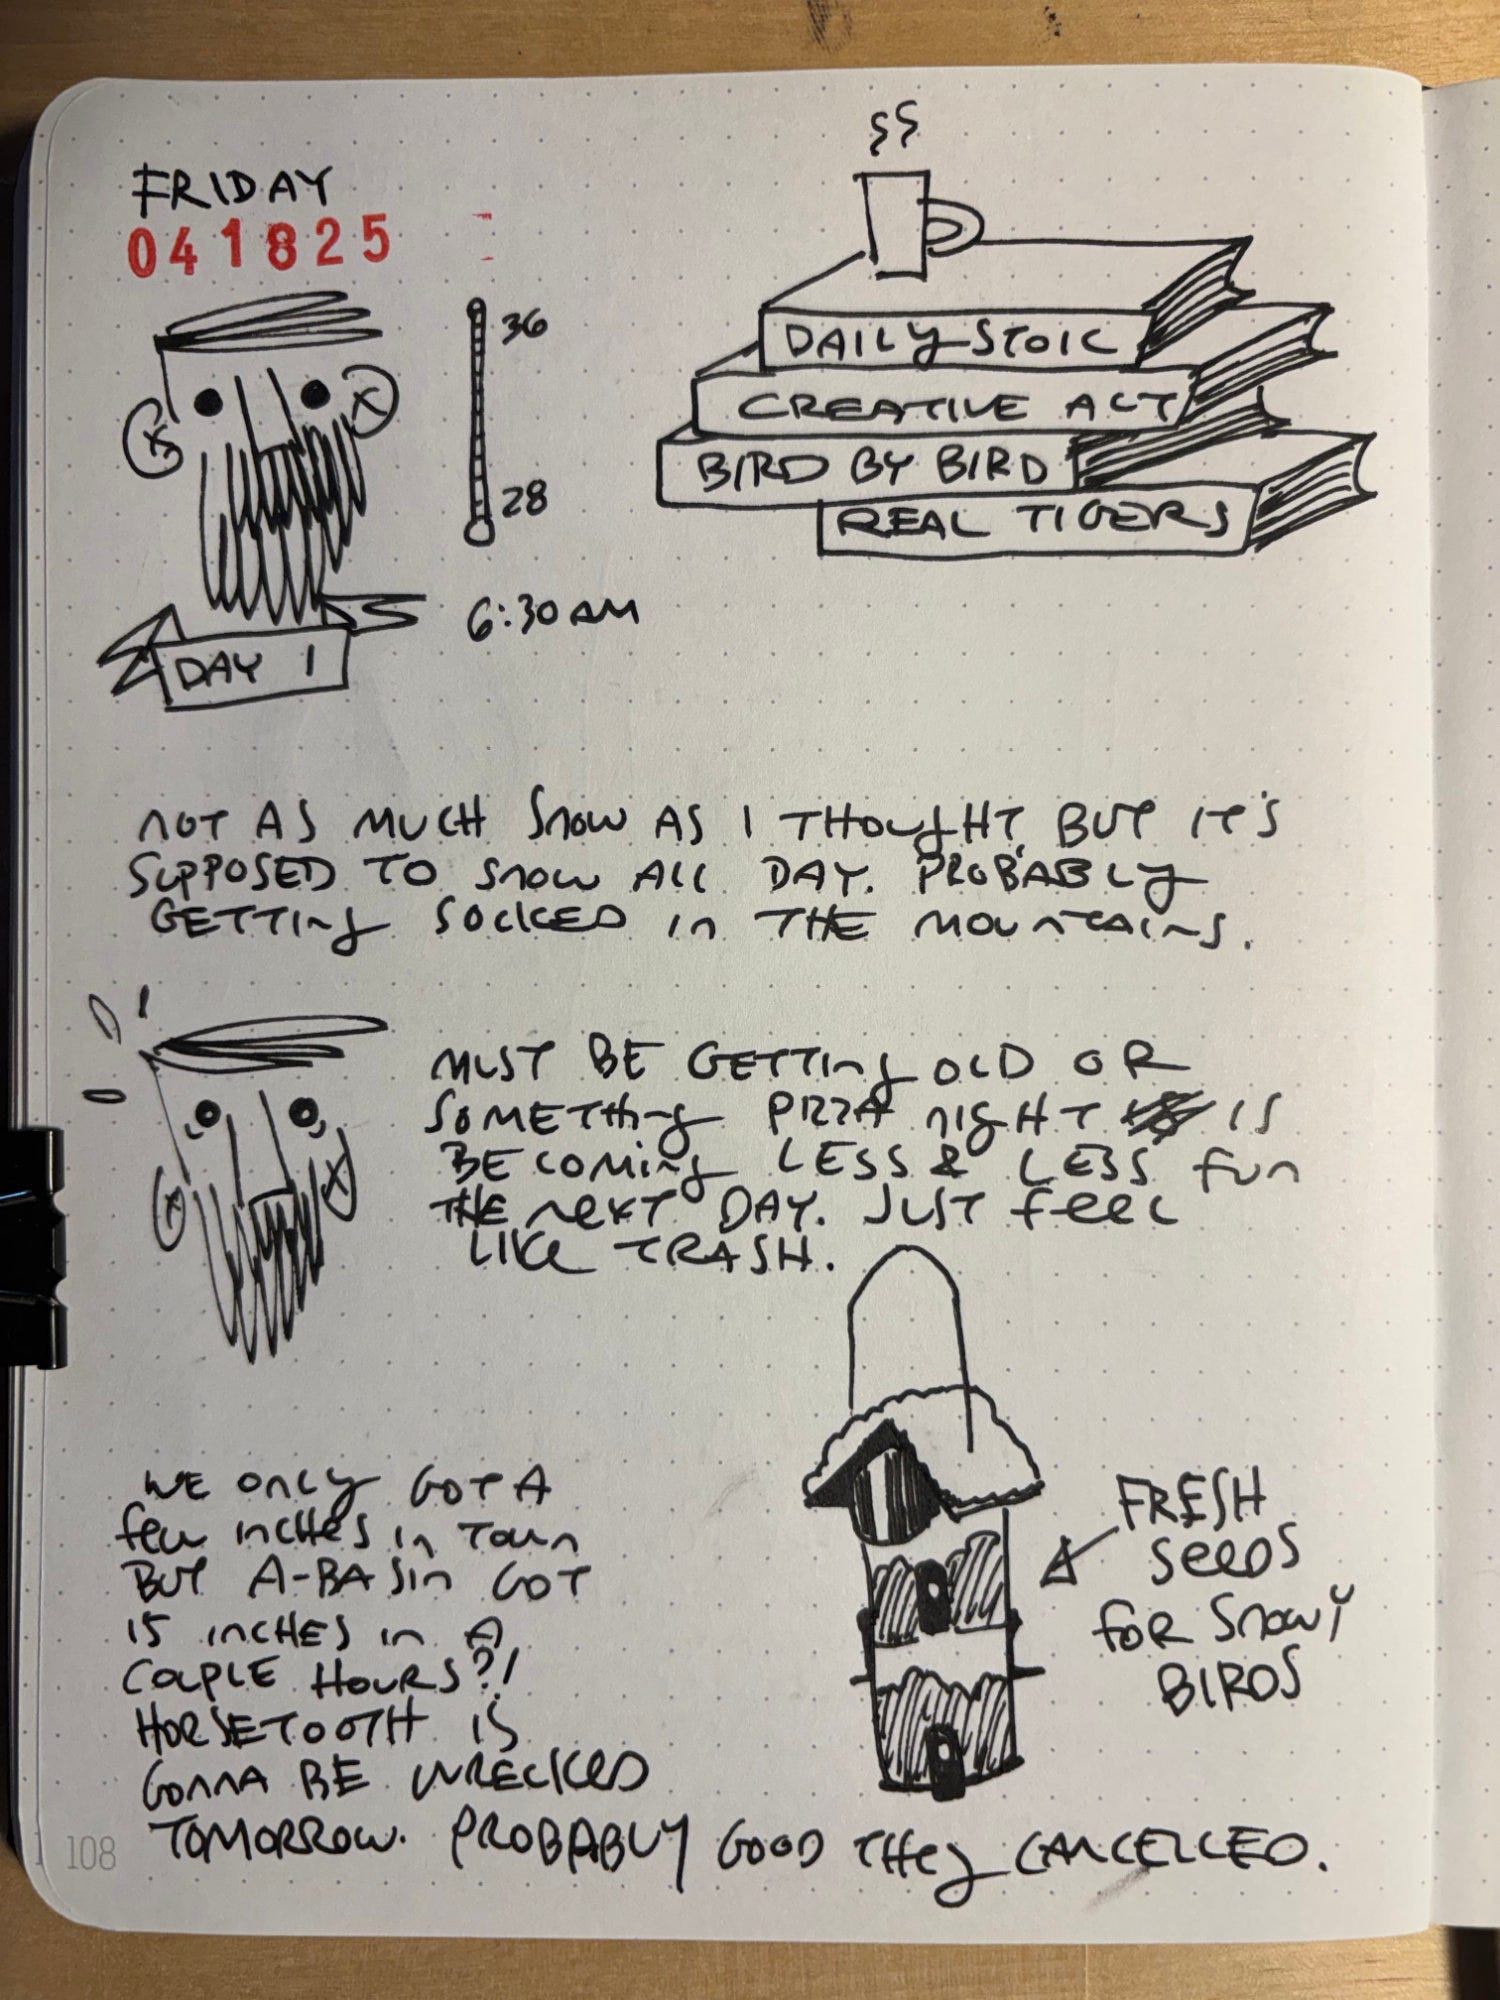 FRIDAY
041825
36
28
6:30AM
DAY 1
DAILY STOIC
CREATIVE ACT
BIRD BY BIRD
REAL TIGERS
NOT AS MUCH SNOW AS I THOUGHT, BUT IT'S
SUPPOSED TO SNOW ALL DAY. PROBABLY
GETTING SOCKED IN THE MOUNTAINS.
MUST BE GETTING OLD OR
SOMETHING PIZZA NIGHT IS
BECOMING LESS & LESS FUN
THE NEXT DAY. JUST FEEL
LIKE TRASH.
WE ONLY GOT A
FEW INCHES IN TOWN
BUT A-BASIN GOT
15 INCHES IN A
COUPLE HOURS?!
HORSETOOTH IS
GONNA BE WRECKED
TOMORROW. PROBABLY GOOD THEY CANCELLED.
FRESH
SEEDS
FOR SNOWY
BIRDS
108